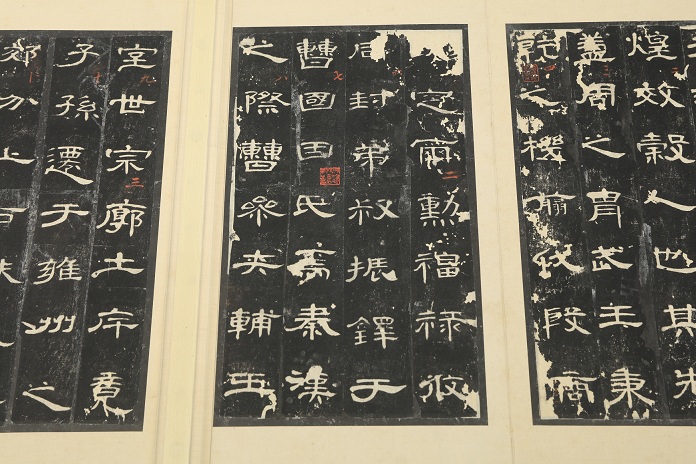 煌效穀人也其先
蓋周之冑武王秉
乾之機翦伐殷商
定爾勳福祿攸
同封弟叔振鐸于
曹國因氏焉秦漢
之際曹參夾輔王
室世宗廓土斥竟
子孫遷于雍州之
郊分止右扶